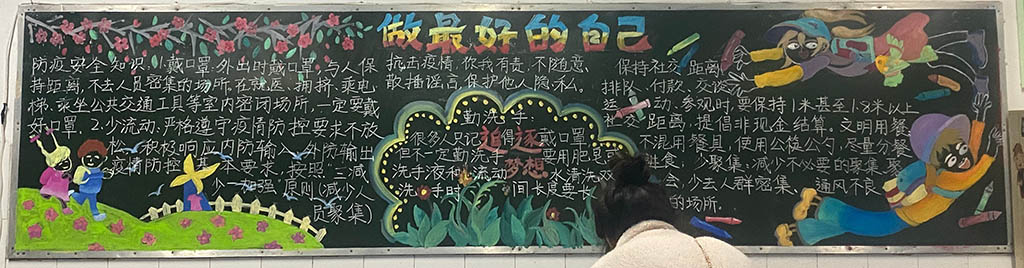 做最好的自己
防疫安全知识:1.戴口罩.外出时戴口罩,与人保
持距离,不去人员密集的场所.在就医、拥挤、乘电
梯、乘坐公共交通工具等室内密闭场所,一定要戴
好口罩.2.少流动.严格遵守疫情防控要求不放
松,积极响应内防输入,外防输出
疫情防控基本要求,按照"三减
少一加强"原则(减少人
员聚集)
抗击疫情,你我有责.不随意
散播谣言,保护他人隐私。
勤洗手
很多人只记得戴口罩
但不一定勤洗手,要用肥皂
洗手液和流动水清洗双
洗手时间长度要
追逐
梦想
保持社交距离
排队、付款、交谈
运动、参观时,要保持1米甚至1.8米以上
社交距离,提倡非现金结算。文明用餐
不混用餐具,使用公筷公勺,尽量分餐
进食,少聚集.减少不必要的聚集聚
会,少去人群密集、通风不良
的场所.